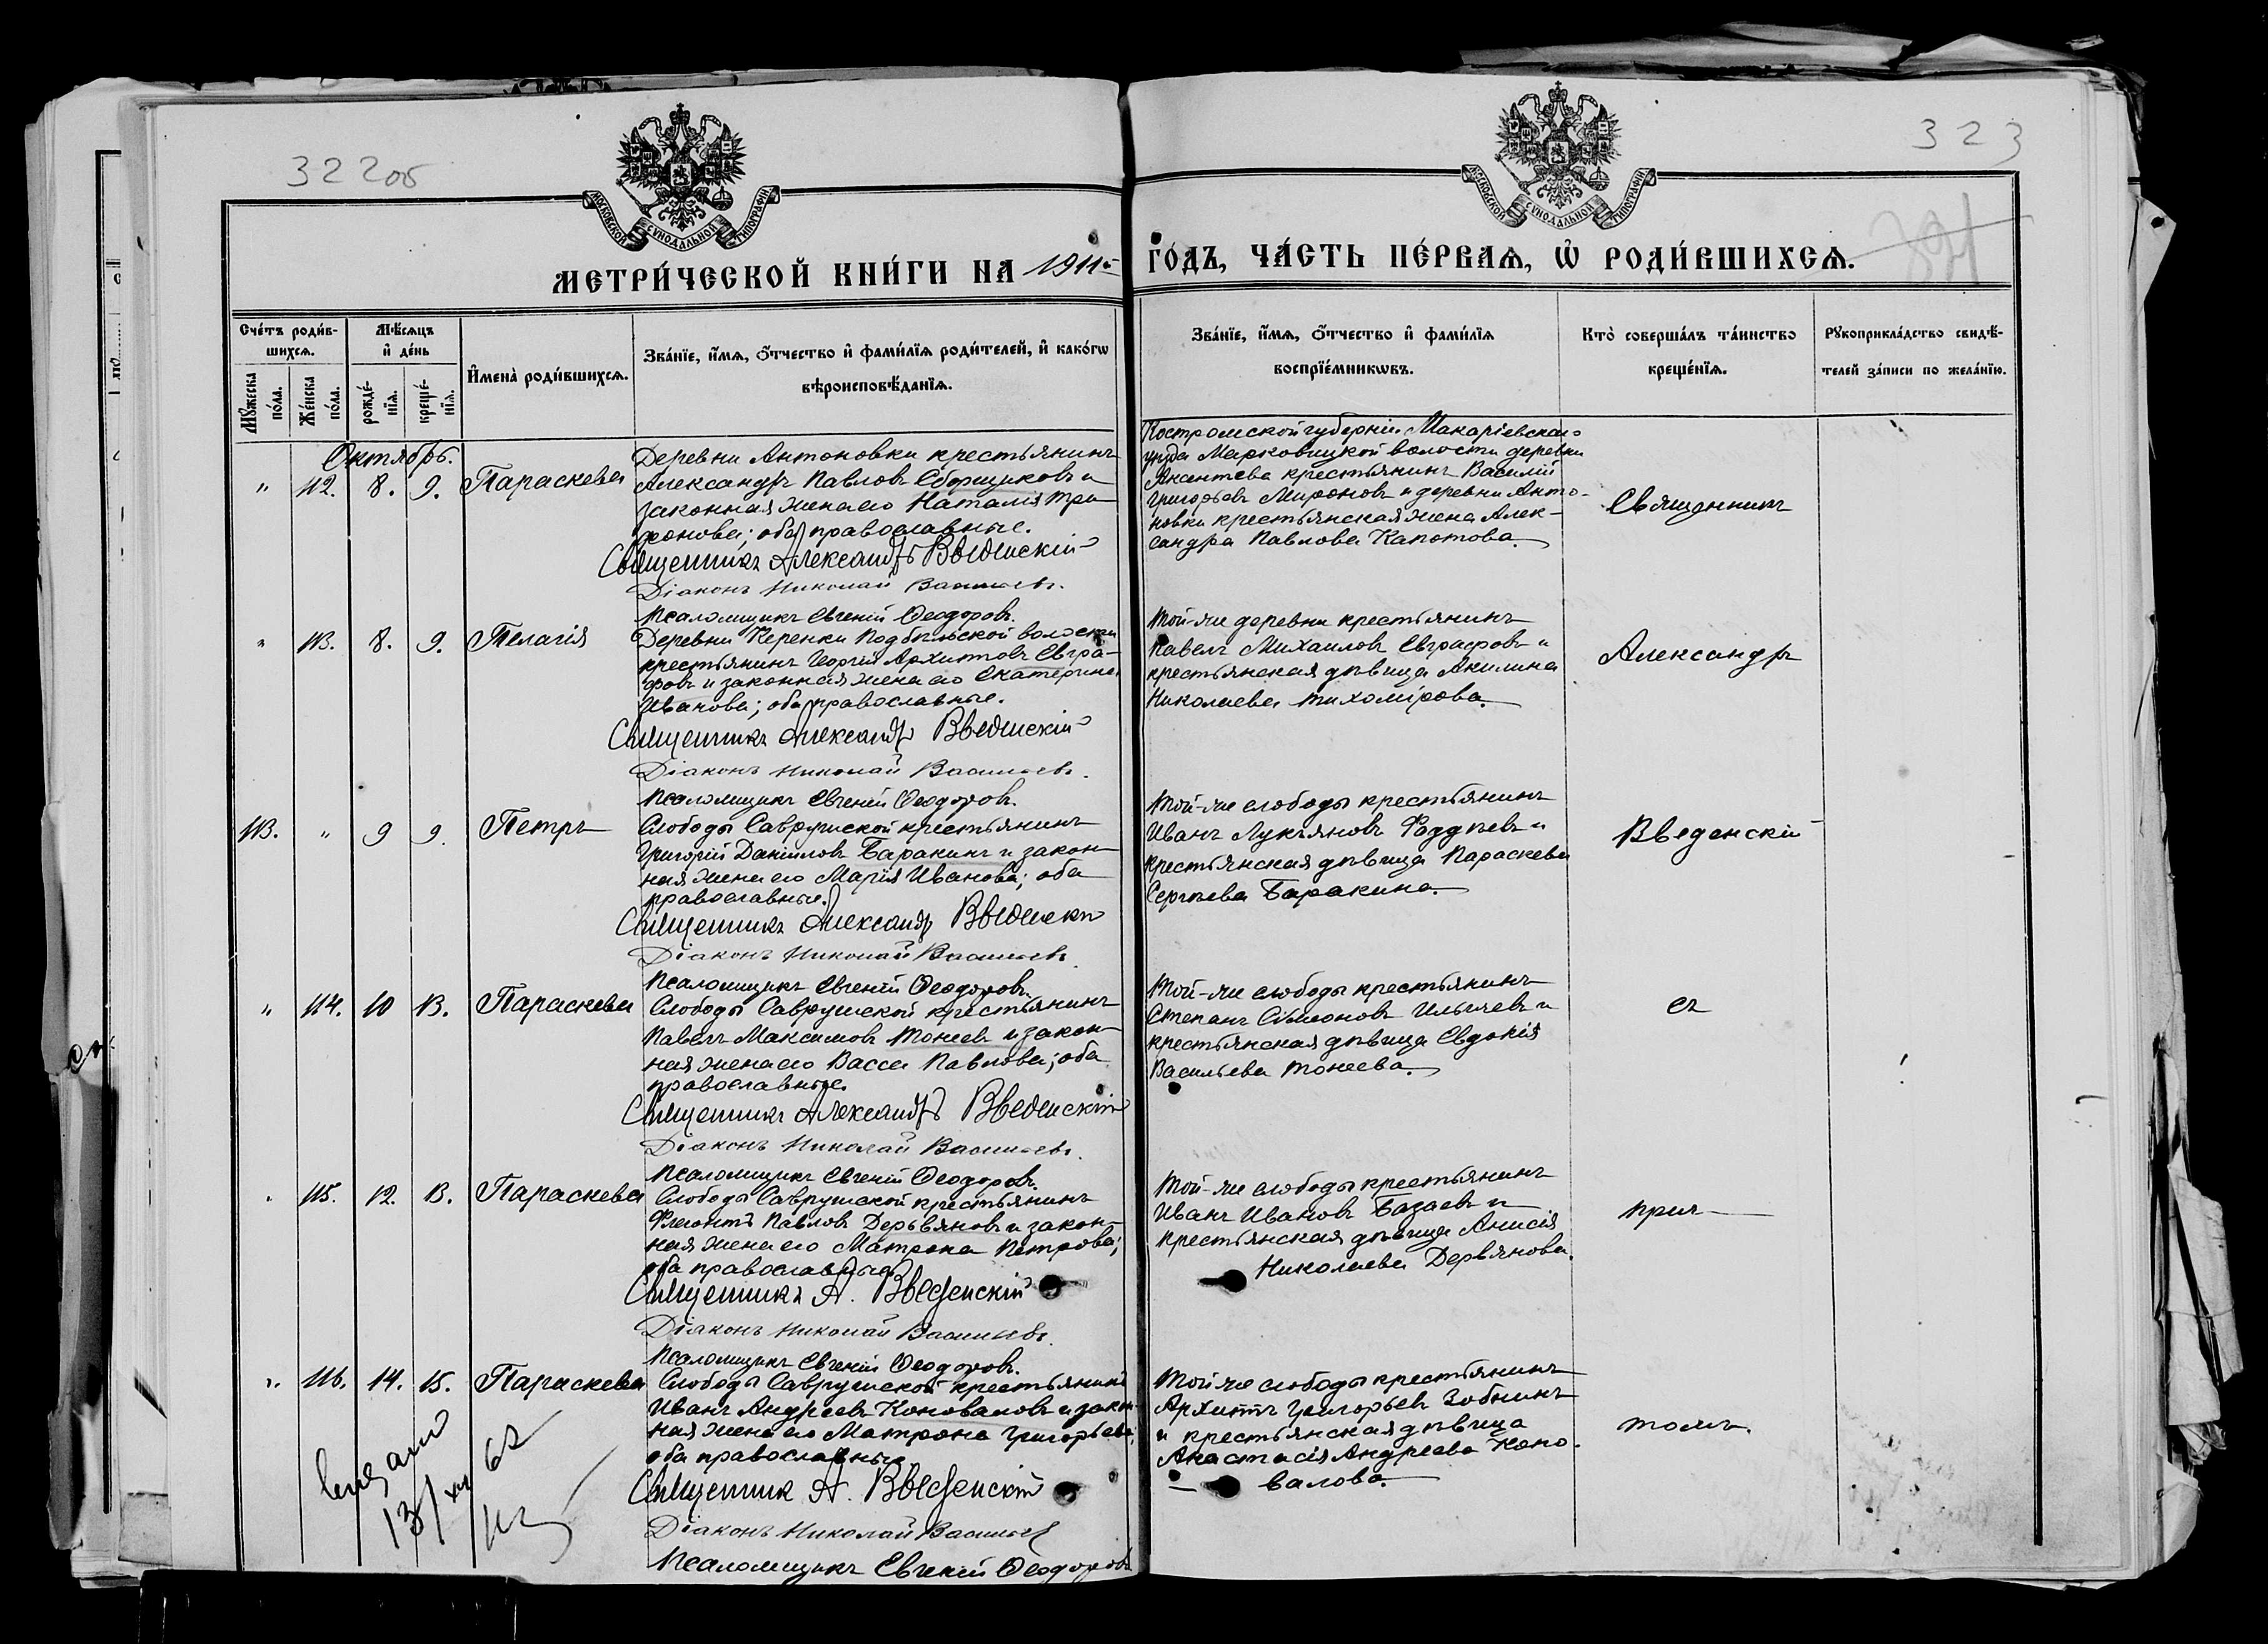 322об
323
МОСКОВСКОЙ СѴНОДАЛЬНОЙ ТИПОГРАФІИ
МОСКОВСКОЙ СѴНОДАЛЬНОЙ ТИПОГРАФІИ
МЕТРИ́ЧЕСКОЙ КНИ́ГИ НА 1911й ГО́ДЪ, ЧА́СТЬ ПЕ́РВАѦ, Ѡ҆ РОДИ́ВШИХСѦ.
Счéтъ роди́в-
шихсѧ.
Мѣ́сѧцъ
и҆ дéнь
И҆менà роди́вшихсѧ.
Звáнїе, и҆́мѧ, ѻ҆́тчество и҆ фами́лїѧ роди́телей, и҆ какóгѡ
вѣроисповѣ́данїѧ.
Мꙋ́жеска
пóла.
Жéнска
пóла.
рождé-
нїѧ.
крещé-
нїѧ.
Звáнїе, и҆́мѧ, ѻ҆́тчество и҆ фами́лїѧ
воспрїéмникѡвъ.
Ктò совершáлъ тáинство
крещéнїѧ.
Рꙋкоприклáдство свидѣ́-
телей зáписи по желáнїю.
Октябрь.
" 112. 8. 9. Параскева
Деревни Антоновки крестьянинъ
Александръ Павловъ Сборщиковъ и
законная жена его Наталія Три-
фонова; оба православные.
Священникъ Александръ Введенскій
Діаконъ Николай Васильевъ.
Псаломщикъ Евгеній Ѳеодоровъ.
Костромской губерніи Макаріевскаго
уѣзда Марковицкой волости деревни
Аксентева крестьянинъ Василій
Григорьевъ Мироновъ и деревни Анто-
новки крестьянская жена Алек-
сандра Павлова Капотова.
Священникъ
" 113. 8. 9. Пелагія
Деревни Керенки Подбѣльской волости
крестьянинъ Георгій Архиповъ Евгра-
фовъ и законная жена его Екатерина
Иванова; оба православные.
Священникъ Александръ Введенскій
Діаконъ Николай Васильевъ.
Псаломщикъ Евгеній Ѳеодоровъ.
Той-же деревни крестьянинъ
Павелъ Михаиловъ Евграфовъ и
крестьянская дѣвица Акилина
Николаева Тихомірова.
Александръ
113. " 9 9. Петръ
Слободы Саврушской крестьянинъ
Григорій Даніиловъ Баракинъ и закон-
ная жена его Марія Иванова; оба
православные.
Священникъ Александръ Введенскій
Діаконъ Николай Васильевъ
Псаломщикъ Евгеній Ѳеодоровъ.
Той-же слободы крестьянинъ
Иванъ Лукьяновъ Фаддѣевъ и
крестьянская дѣвица Параскева
Сергѣева Баракина.
Введенскій
" 114. 10 13. Параскева
Слободы Саврушской крестьянинъ
Павелъ Максимовъ Тонеевъ и закон-
ная жена его Васса Павлова; оба
православные.
Священникъ Александръ Введенскій
Діаконъ Николай Васильевъ.
Псаломщикъ Евгеній Ѳеодоровъ.
Той-же слободы крестьянинъ
Степанъ Сѵмеоновъ Ильичевъ и
крестьянская дѣвица Евдокія
Васильева Тонеева.
съ
" 115. 12. 13. Параскева
Слободы Саврушской крестьянинъ
Флегонтъ Павловъ Дерьвяновъ и закон-
ная жена его Матрона Петрова;
оба православные
Священникъ А. Введенскій
Діаконъ Николай Васильевъ.
Псаломщикъ Евгеній Ѳеодоровъ.
Той-же слободы крестьянинъ
Иванъ Ивановъ Базаевъ и
крестьянская дѣвица Анисія
Николаева Дервянова.
прич-
" 116. 14. 15. Параскева
Слободы Саврушской крестьянинъ
Иванъ Андреевъ Коноваловъ и закон-
ная жена его Матрона Григорьева;
оба православные
Священникъ А. Введенскій
Діаконъ Николай Васильевъ
Псаломщикъ Евгеній Ѳеодоровъ
Той же слободы крестьянинъ
Архиппъ Григорьевъ Зобнинъ
и крестьянская дѣвица
Анастасія Андреева Коно-
валова.
томъ.